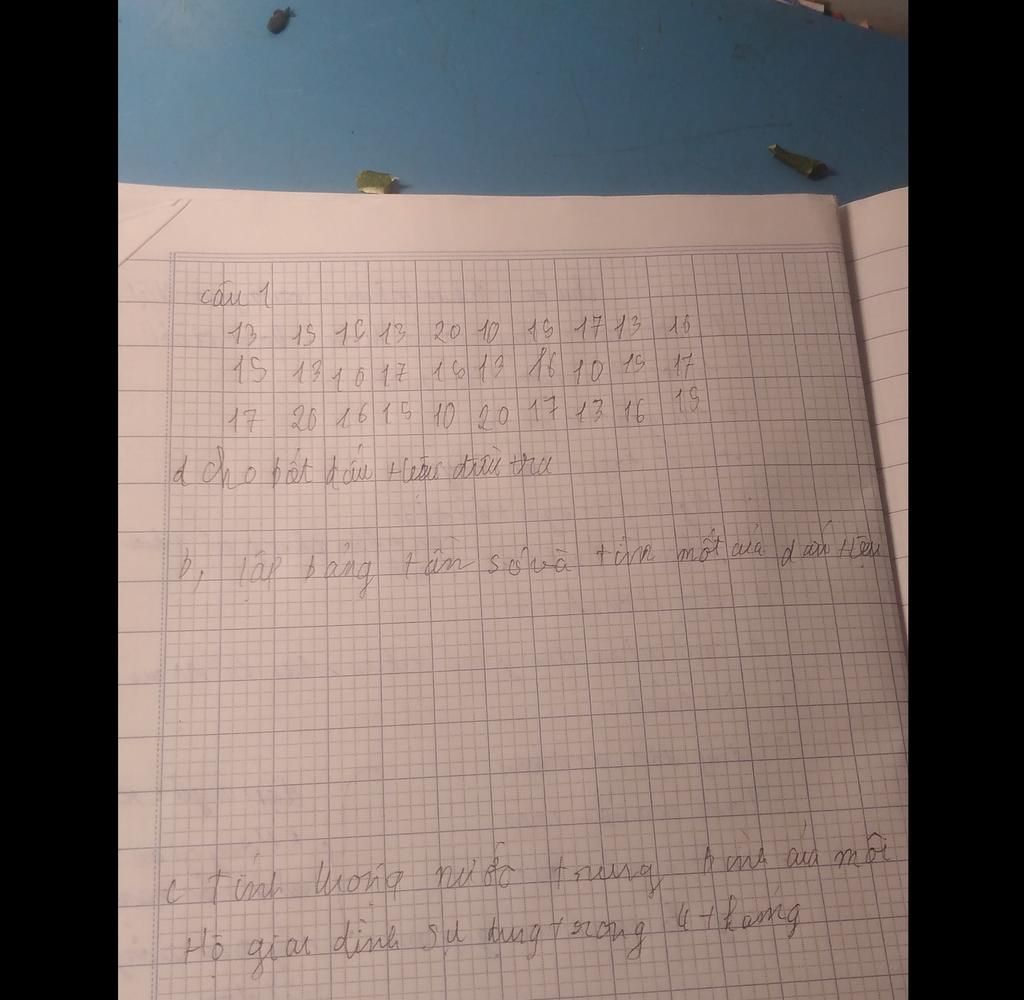 câu 1
13 15 15 13 20 10 15 17 13 16
15 13 16 17 15 13 16 10 15 17
17 20 16 15 10 20 17 13 16 15
a Cho biết dấu hiệu điều tra
b, lập bảng tần số và tìm mốt của dấu hiệu
c tính lượng nước trung bình của mỗi
Hộ gia đình sử dụng trong 4 tháng